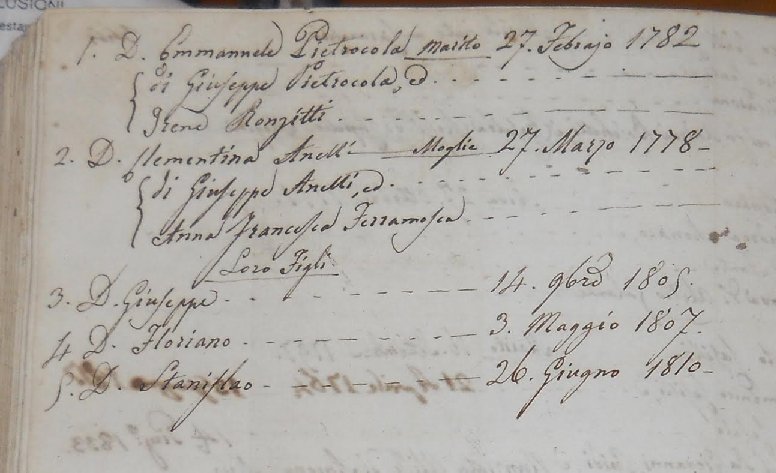 LUSIONI
1. D. Emmanuele Pietrocola marito 27. Febrajo 1782
di Giuseppe Pietrocola, ed
Irene Ronzitti
2. D. Clementina Anelli Moglie 27. Marzo 1778
di Giuseppe Anelli, ed
Anna Francesca Ferramosca
Loro Figli
3. D. Giuseppe 14. 9bre 1805.
4 D. Floriano 3. Maggio 1807.
5. D. Stanislao 26. Giugno 1810